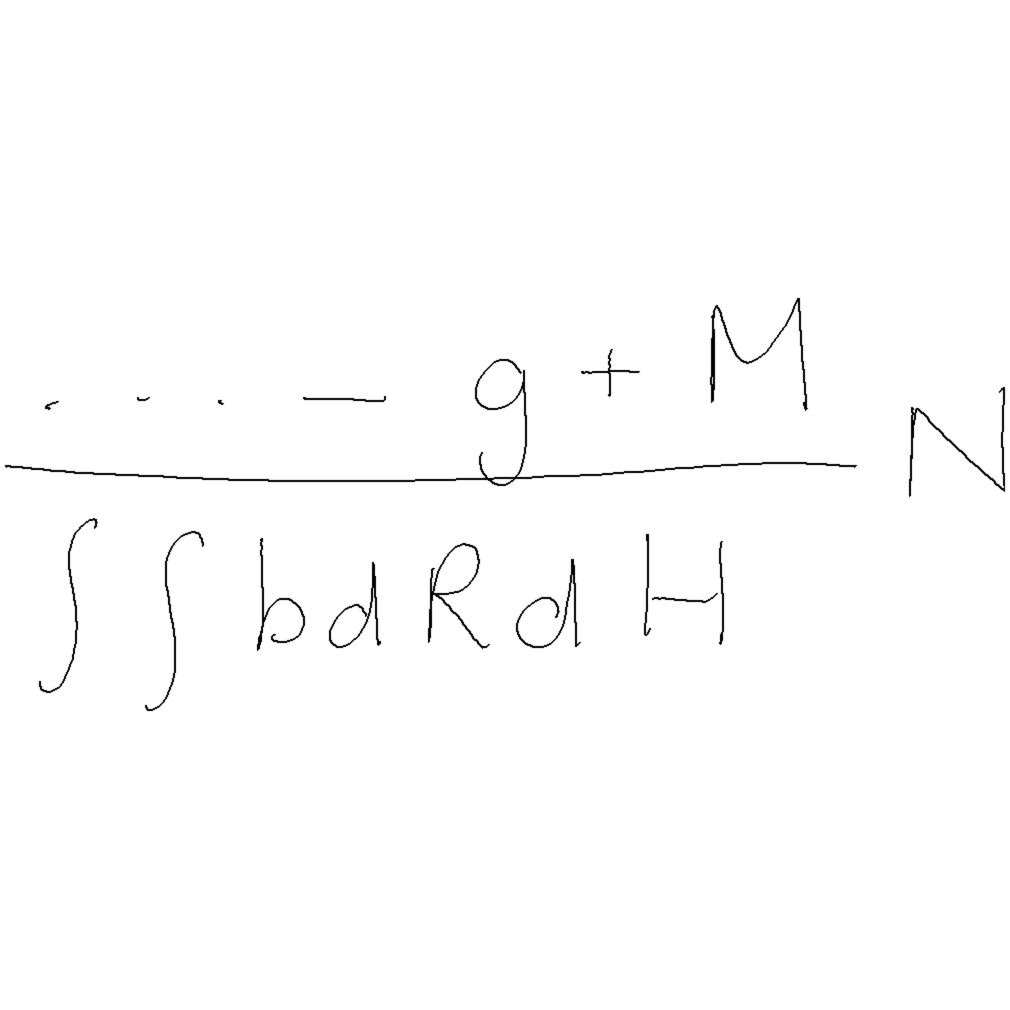 \frac{\dots - g + M}{\int \int b d R d H} N